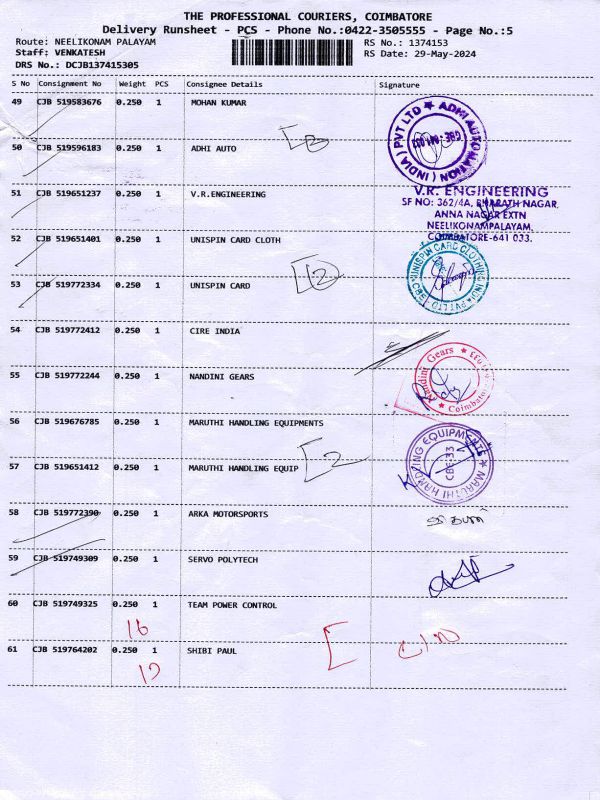 THE PROFESSIONAL COURIERS, COIMBATORE
Delivery Runsheet - PCS - Phone No.:0422-3505555 - Page No.:5
Route: NEELIKONAM PALAYAM RS No.: 1374153
Staff: VENKATESH RS Date: 29-May-2024
DRS No.: DCJB137415305
S No Consignment No Weight PCS Consignee Details Signature
49 CJB 519583676 0.250 1 MOHAN KUMAR
ADHI AUTOMATION (INDIA) PVT LTD
50 CJB 519596183 0.250 1 ADHI AUTO
51 CJB 519651237 0.250 1 V.R.ENGINEERING
V.R. ENGINEERING
SF NO: 362/4A, BHARATH NAGAR,
ANNA NAGAR EXTN
NEELIKONAMPALAYAM,
COIMBATORE-641 033.
52 CJB 519651401 0.250 1 UNISPIN CARD CLOTH
53 CJB 519772334 0.250 1 UNISPIN CARD
12
54 CJB 519772412 0.250 1 CIRE INDIA
55 CJB 519772244 0.250 1 NANDINI GEARS
Nandini Gears
Coimbatore
56 CJB 519676785 0.250 1 MARUTHI HANDLING EQUIPMENTS
MARUTHI HANDLING EQUIPMENTS
CBE-33
57 CJB 519651412 0.250 1 MARUTHI HANDLING EQUIP
2
58 CJB 519772390 0.250 1 ARKA MOTORSPORTS
59 CJB 519749309 0.250 1 SERVO POLYTECH
60 CJB 519749325 0.250 1 TEAM POWER CONTROL
16
61 CJB 519764202 0.250 1 SHIBI PAUL